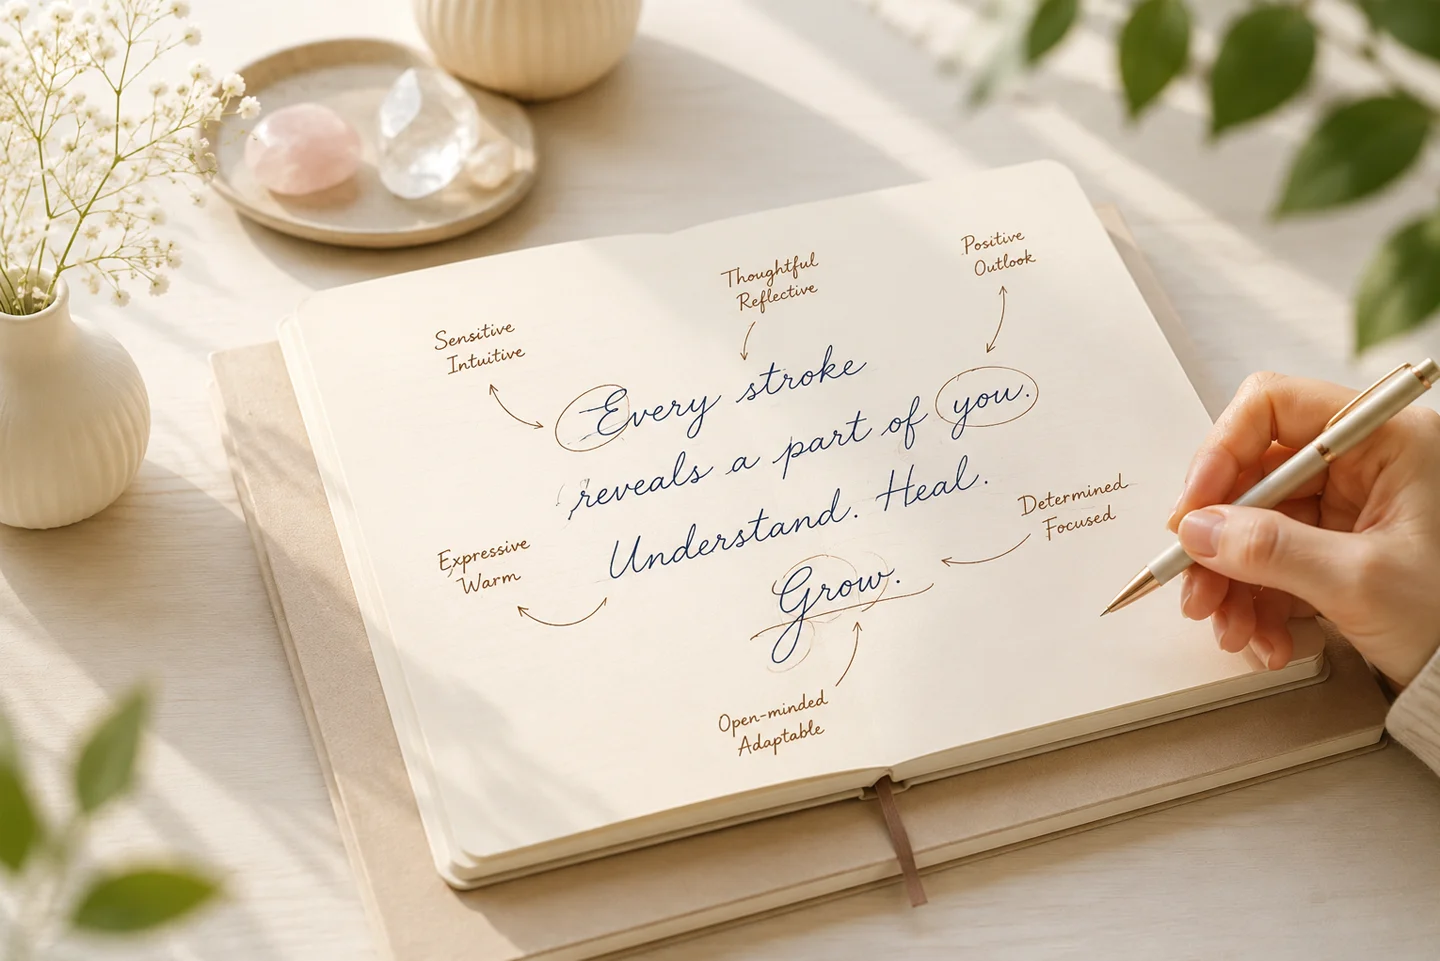 Thoughtful
Reflective
Positive
Outlook
Sensitive
Intuitive
Every stroke
reveals a part of you.
Understand. Heal.
Grow.
Determined
Focused
Expressive
Warm
Open-minded
Adaptable